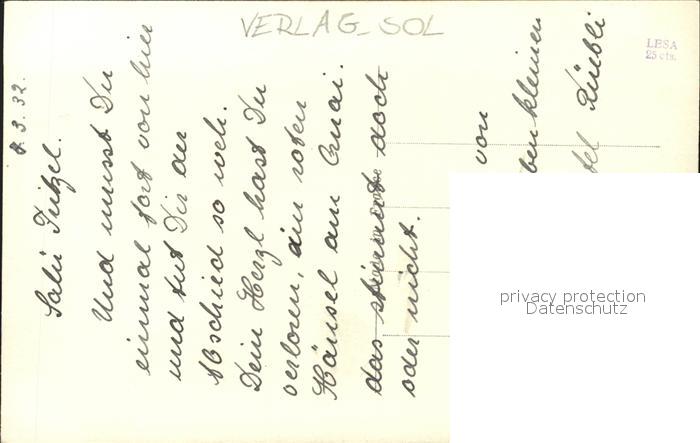 VERLAG SOL
LESA
25 cts.
8.3.32.
Salü
Und musst Du
einmal fort von hier
und tut Dir der
Abschied so weh.
Dein Herzl hast Du
verloren, im roten
Häusel am
das stimmt doch
oder nicht.
von
kleinen
Rüebli
privacy protection
Datenschutz